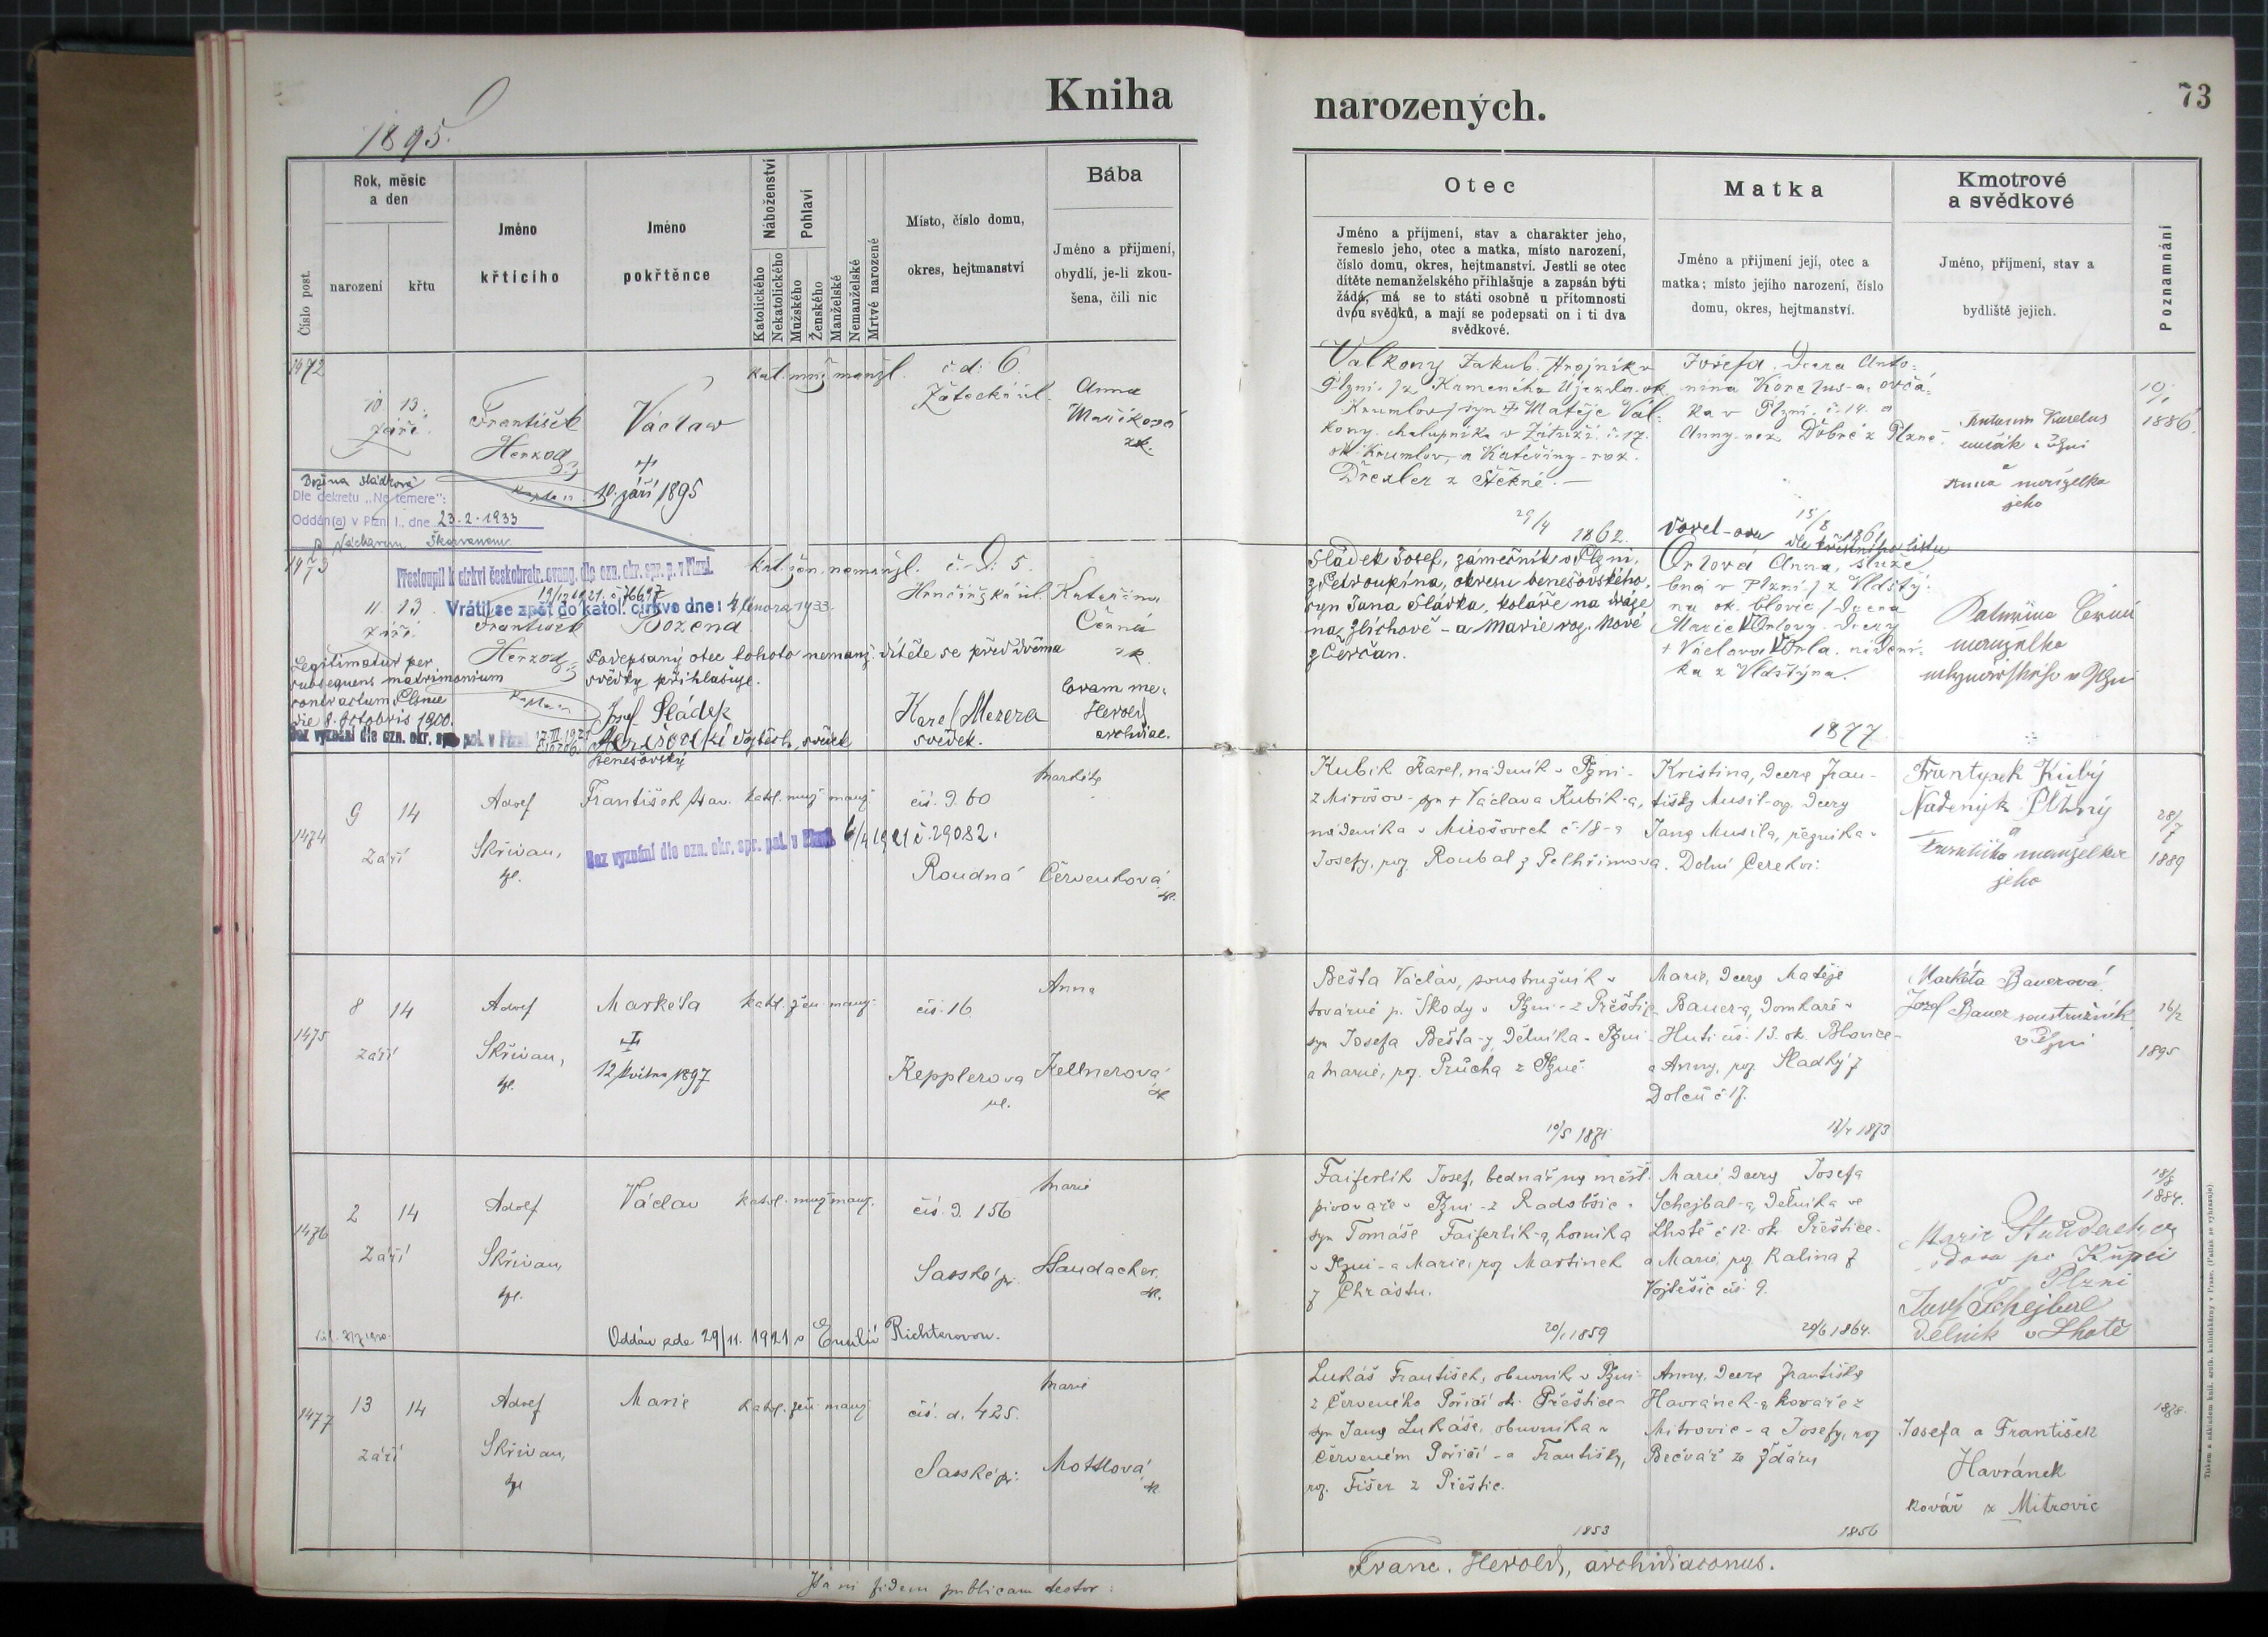 Kniha
narozených.
73
1895.
Číslo post.
Rok, měsíc
a den
narození
křtu
Jméno
křticího
Jméno
pokřtěnce
Náboženství
Katolického
Nekatolického
Pohlaví
Mužského
Ženského
Manželské
Nemanželské
Mrtvé narozené
Místo, číslo domu,
okres, hejtmanství
Bába
Jméno a přijmení,
obydlí, je-li zkou-
šena, čili nic
Otec
Jméno a příjmení, stav a charakter jeho,
řemeslo jeho, otec a matka, místo narození,
číslo domu, okres, hejtmanství. Jestli se otec
dítěte nemanželského přihlašuje a zapsán býti
žádá, má se to státi osobně u přítomnosti
dvou svědků, a mají se podepsati on i ti dva
svědkové.
Matka
Jméno a přijmení její, otec a
matka; místo jejího narození, číslo
domu, okres, hejtmanství.
Kmotrové
a svědkové
Jméno, příjmení, stav a
bydliště jejich.
Poznamnání
1472
10 13.
září.
František
Herzog
Kaplan
Václav
10. září 1895
kat. muž. manžl.
č. d. 6.
Žatecká ul.
Anna
zk.
Valkony Jakub.
Plzni. / z Kamenného Újezda ok.
Krumlov / syn Matěje Val-
kony. chalupníka v č. 17.
ok. Krumlov, a Kateřiny roz.
Drexler z
29/4 1862.
Josefa. Dcera Anto-
nína Korelus-a, ovčá-
ka v Plzni. č. 14. a
Anny roz. Dobré z Plzně
15/8 1861
Antonín Karelus
ovčák v Plzni
a
Anna manželka
jeho
19/1
1886.
Božena Sládková
Dle dekretu „Ne temere":
Oddán(a) v Plzni I., dne 23-2-1933
s Škarvanem
1473
Přestoupil k církvi českobratr. evang. dle ozn. okr. spr. p. v Plzni.
19/12 1921. č. 76697
Vrátil se zpět do katol. církve dne: 4. února 1933.
11. 13.
září.
František
Herzog
Kaplan
Božena
kat. žen. nemanžl.
č. D. 5.
Hrnčířská ul.
Kateřina
Černá
zk.
Podepsaný otec tohoto nemanž. dítěte se před dvěma
svědky přihlašuje.
Legitimatur per
subsequens matrimonium
contractum Plsnae
die 8. Octobris 1900.
Bez vyznání dle ozn. okr. spr. pol. v Plzni
Josef Sládek
Karel Mezera
svědek.
Vojtěch, svědek
Benešovský
Coram me:
Herold
archidiac.
Sládek Josef, zámečník v Plzni,
z Petroupína, okresu benešovského,
syn Jana Sládka, koláře na dráze
na Zlíchově - a Marie roz. Nové
z Čerčan.
Vorel-ova dle křestního listu
Orlová Anna, služe
bná v Plzni / z Vldštý-
na ok. Blovic / Dcera
Marie Orlovy. Dcery
+ Václava Orla. nádení-
ka z Vldštýna.
1877.
Kateřina Černá
manželka
v Plzni
1474
9 14
Září
Adolf
Skřivan,
kpl.
František
katol. muž. manž.
Bez vyznání dle ozn. okr. spr. pol. v Plzni. 6/4 1921 č. 29082.
čís. d. 60
Roudná
Markéta
Červenková
zk.
Kubík Karel, nádeník v Plzni -
z Mirošov - syn + Václava Kubík-a,
nádeníka v Mirošovech č. 18 - a
Josefy, roz. Roubal z Pelhřimova.
Kristina, dcera Fran-
tišky Musil-ovy, dcery
Jana Musila, řezníka v
Dolní Cerekvi.
Frantysek Kubý
Nadenyk Plzný
a
Františka manželka
jeho
28/7
1889
1475
8 14
září
Adolf
Skřivan,
kpl.
Markéta
12 května 1897
katol. žen. manž.
čís. 16.
Kepplerova
ul.
Anna
Kellnerová
zk.
Bešta Václav, soustružník v
továrně p. Škody v Plzni - z Přeštic
syn Josefa Bešta-y, dělníka v Plzni
a Marie, roz. Průcha z Plzně.
10/5 1871
Marie, dcera Matěje
Bauer-a, domkáře v
Huti čís. 13. ok. Blovice -
a Anny, roz. Sladký z
Dolců č. 17.
1873
Markéta Bauerová.
Josef Bauer soustružník
v Plzni
16/2
1895
1476
2 14
Září
Adolf
Skřivan,
kpl.
Václav
katol. muž. manž.
čís. d. 156
Saské př.
Marie
Haudacher.
zk.
Oddán zde 29/11. 1921 s Emilií Richterovou.
Faiferlík Josef, bednář v měšť.
pivováře v Plzni - z Radobšic -
syn Tomáše Faiferlík-a, horníka
v Plzni - a Marie, roz. Martínek
z Chrástu.
20/1 1859
Marie, dcera Josefa
Schejbal-a, dělníka ve
Lhotě č. 12. ok. Přeštice -
a Marie, roz. Kalina z
Vojtěšic čís. 9.
29/6 1864.
Marie
vdova po Kupci
v Plzni
Josef Schejbal
dělník v Lhotě
18/8
1884.
1477
13 14
září
Adolf
Skřivan,
kpl
Marie
katol. žen. manž.
čís. d. 425.
Saské př.
Marie
Mottlová
zk.
Lukáš František, obuvník v Plzni -
z Červeného Poříčí ok. Přeštice -
syn Jana Lukáše, obuvníka v
Červeném Poříčí - a Františky,
roz. Fišer z Přeštic.
1853
Anna, dcera Františka
Havránek-a, kováře z
Mitrovic - a Josefy, roz.
Bečvář ze Ždáru
1856
Josefa a František
Havránek
kovář z Mitrovic
1878.
In cujus fidem publicam testor:
Franc. Herold, archidiaconus.